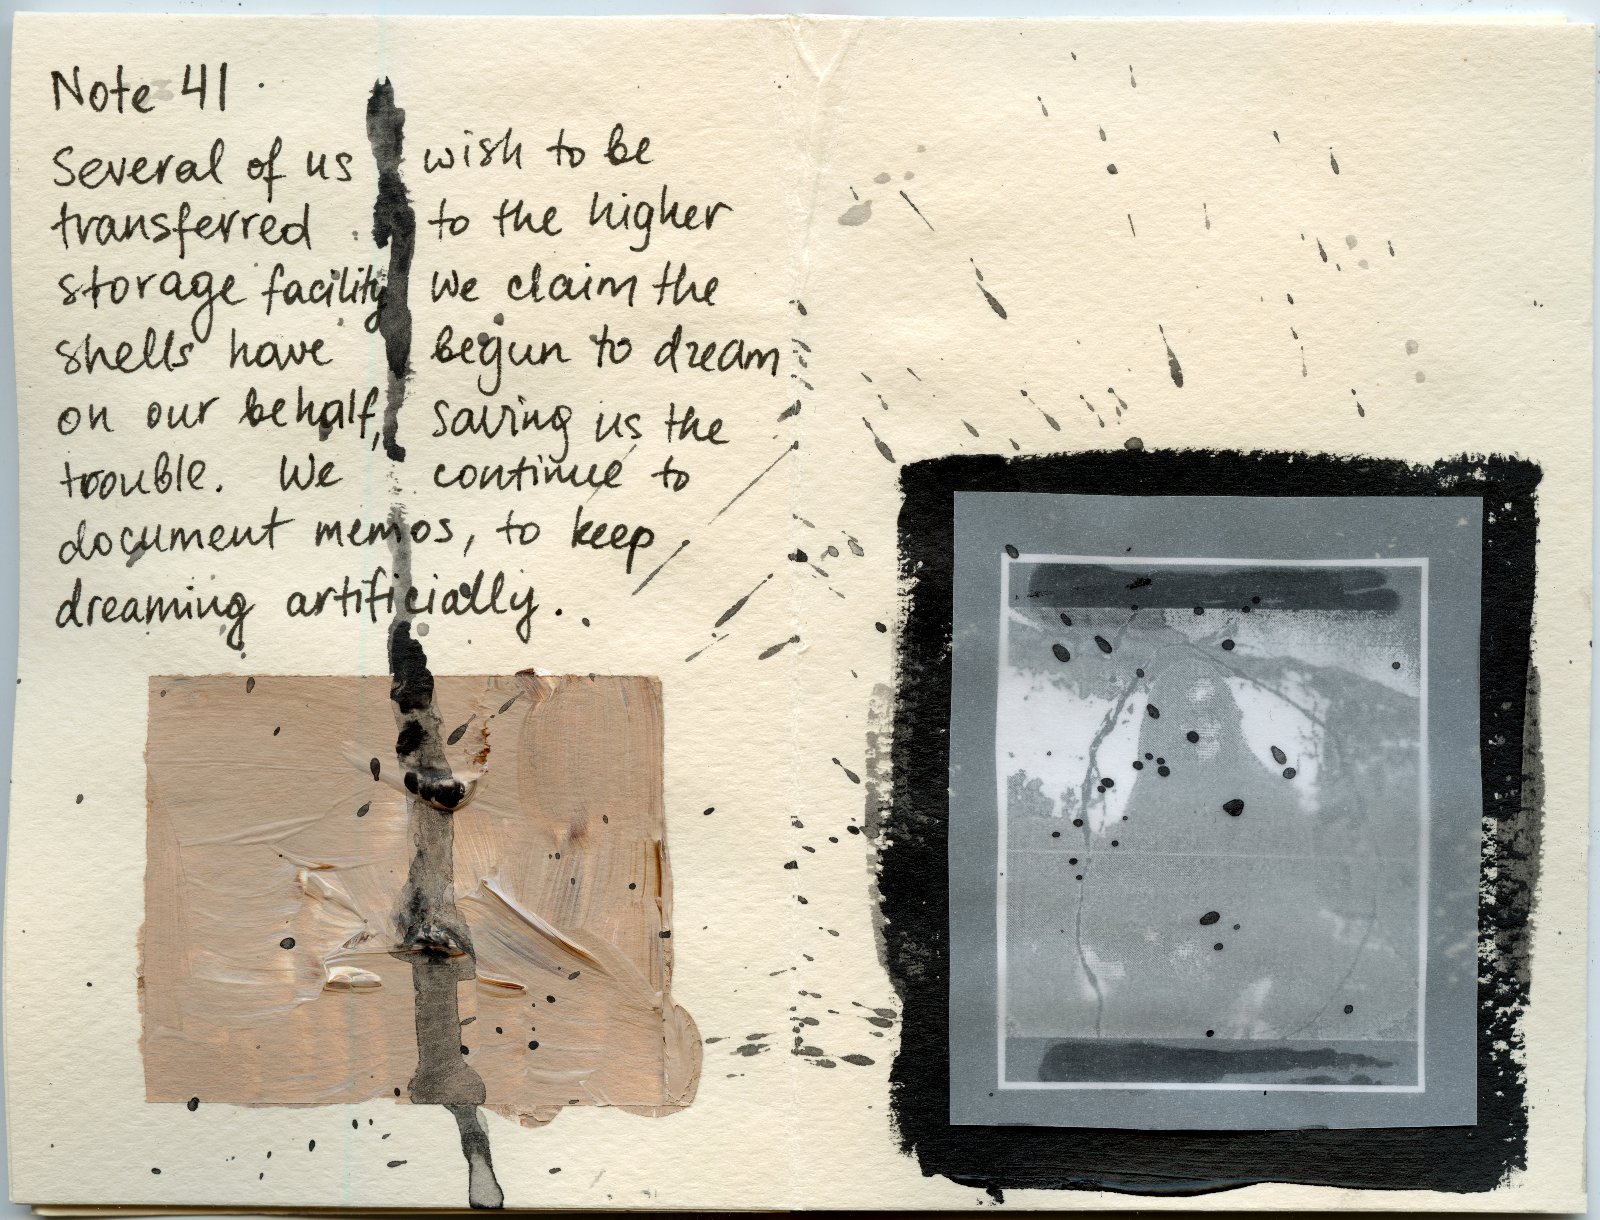 Note 41
Several of us wish to be
transferred to the higher
storage facility we claim the
shells have begun to dream
on our behalf, saving us the
trouble. We continue to
document memos, to keep
dreaming artificially.